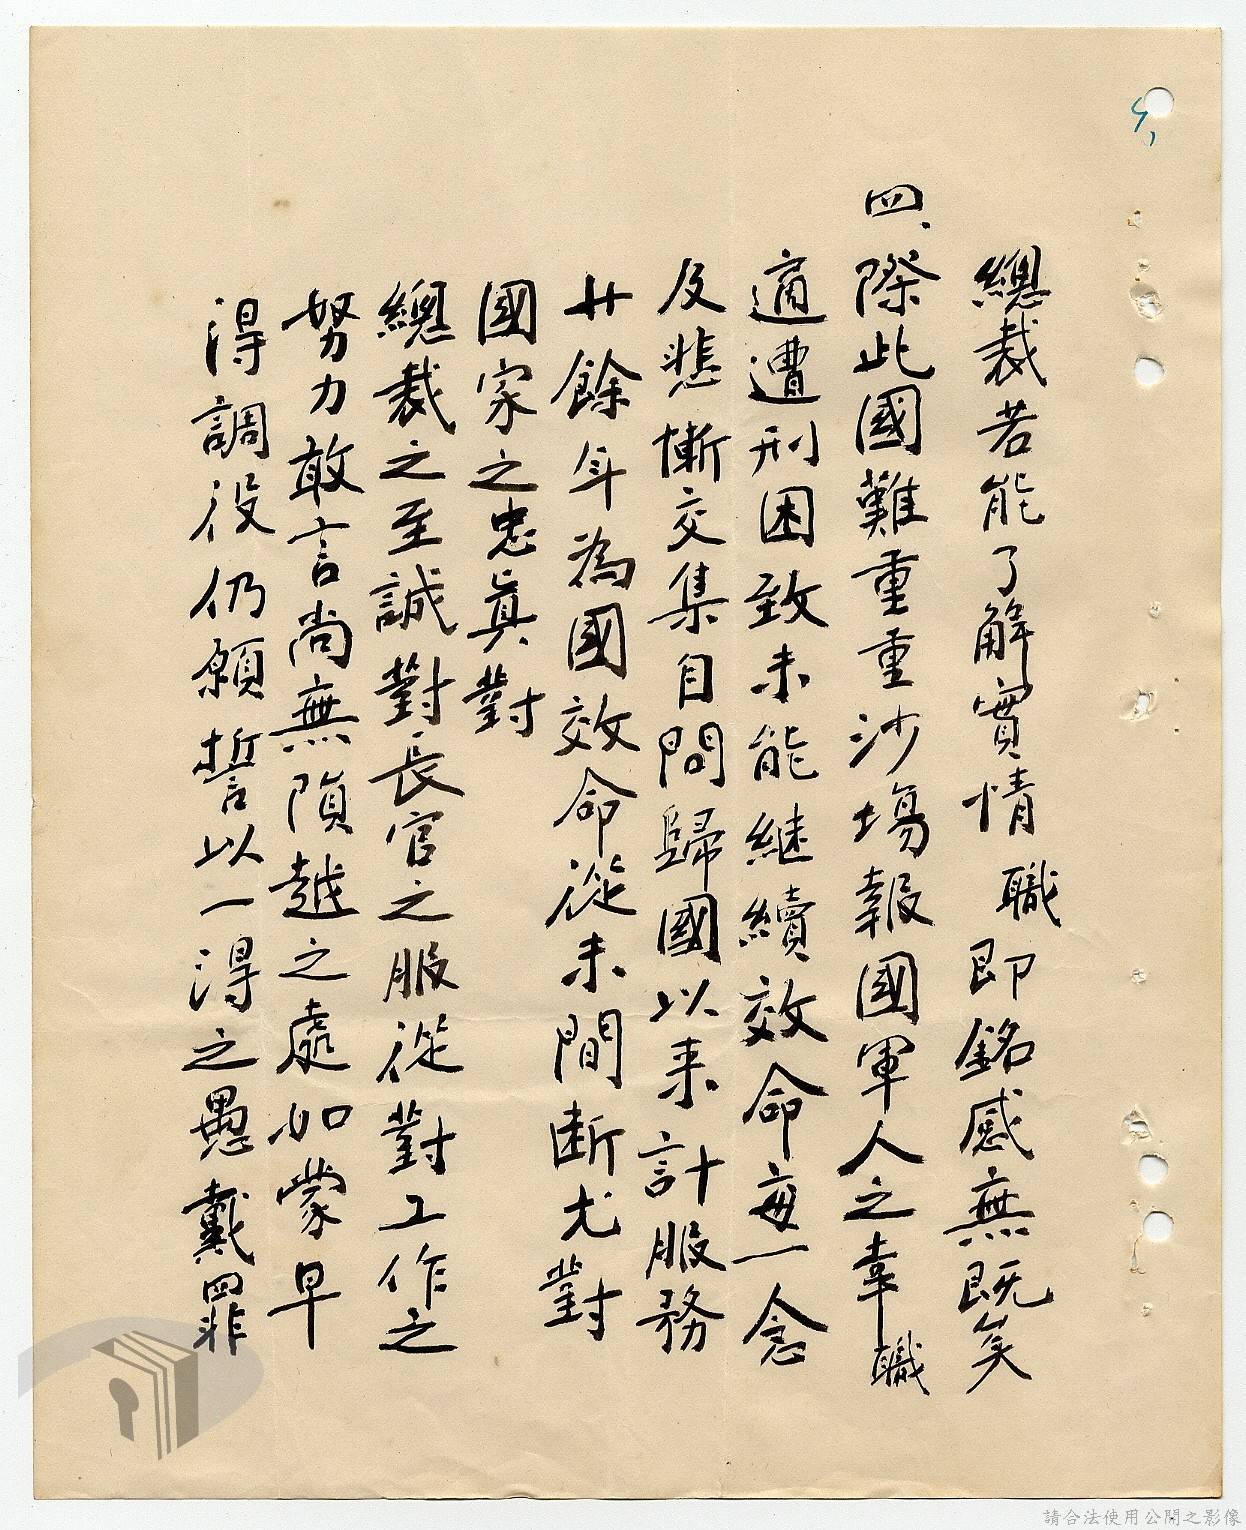 總裁若能了解實情職即銘感無既矣
四、際此國難重重沙場報國軍人之幸職
適遭刑困致未能繼續效命每一念
及悲慚交集自問歸國以来計服務
廿餘年為國效命從未間断尤對
國家之忠眞對
總裁之至誠對長官之服從對工作之
努力敢言尚無隕越之處如蒙早
得調役仍願誓以一得之愚戴罪
請合法使用公開之影像